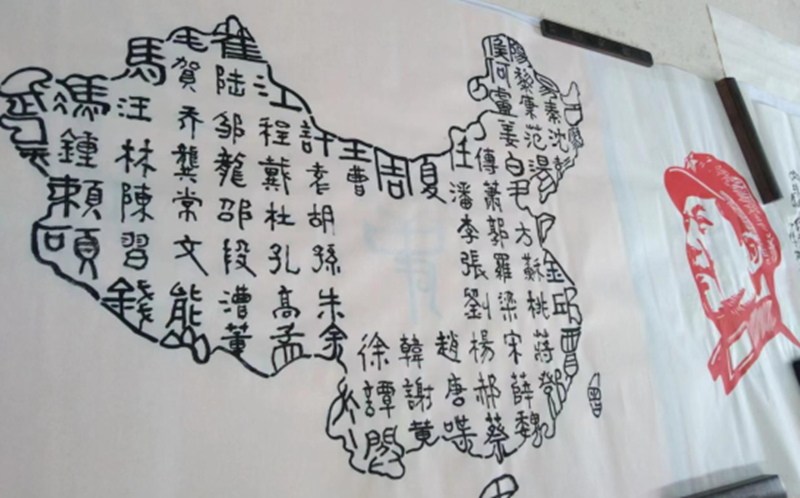 秦沈
黎康范湯
侯何盧姜白尹方蘇桃蔣鄧
金邱曹
傅蕭郭羅梁宋薛魏
任潘李張劉楊郝蔡
趙唐
韓謝黄
徐譚閻
夏
周
王曹
許袁胡孫朱余
江程戴杜孔高孟
崔陆邹龍邵段漕董
毛賀乔龔常文能
馬汪林陳習錢
馮鍾賴項
武